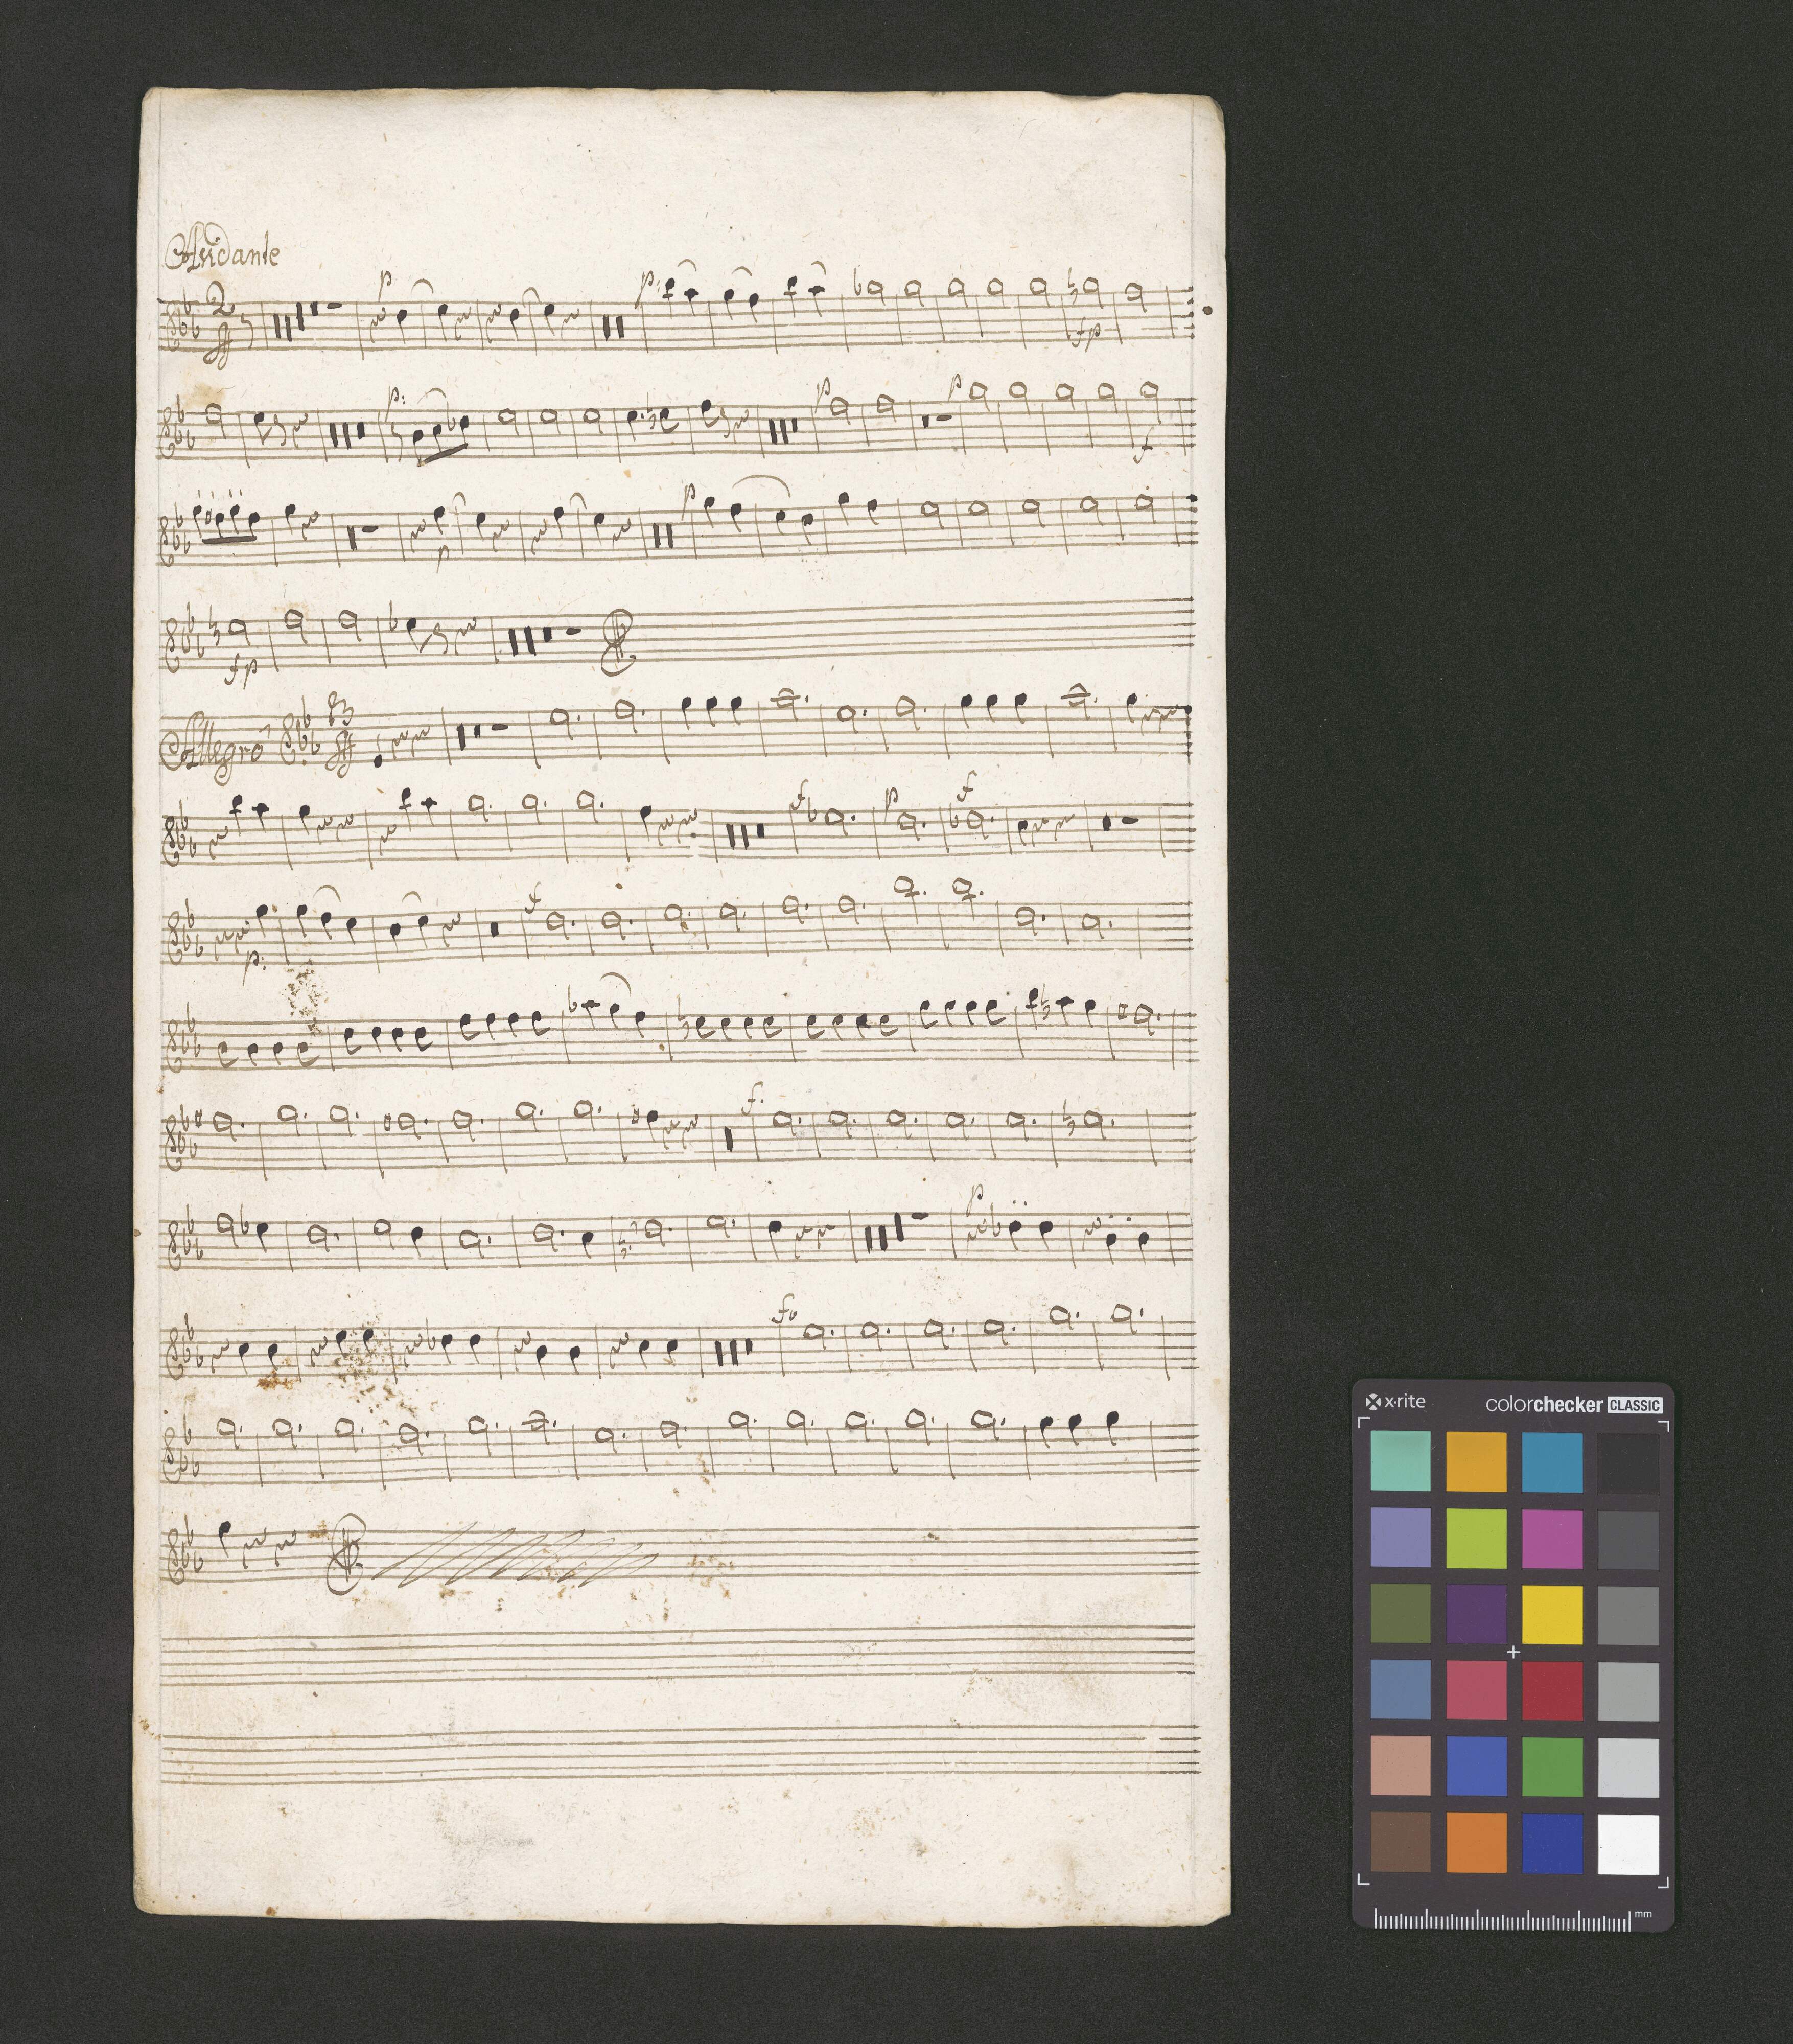 Andante
2
p
p:
fp
p:
p
p
f
p
p
fp
Allegro
f
p
f
p:
f
f.
p
fo
x·rite
colorchecker CLASSIC
mm